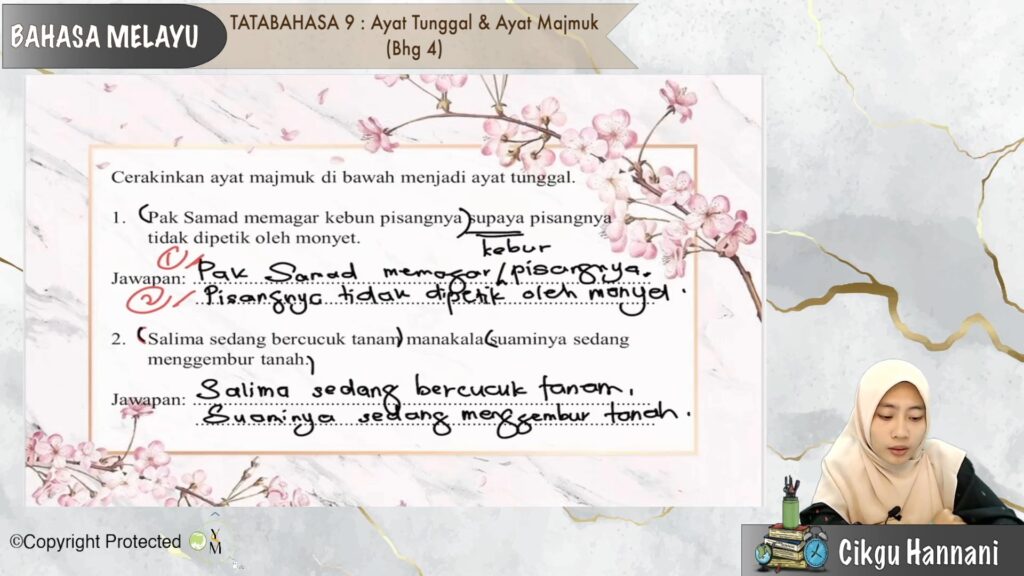 BAHASA MELAYU
TATABAHASA 9 : Ayat Tunggal & Ayat Majmuk
(Bhg 4)
Cerakinkan ayat majmuk di bawah menjadi ayat tunggal.
1. (Pak Samad memagar kebun pisangnya) supaya pisangnya
tidak dipetik oleh monyet.
kebun
① Jawapan: Pak Samad memagar / pisangnya.
② Pisangnya tidak dipetik oleh monyet.
2. (Salima sedang bercucuk tanam) manakala (suaminya sedang
menggembur tanah.)
Jawapan: Salima sedang bercucuk tanam.
Suaminya sedang menggembur tanah.
©Copyright Protected YM
Cikgu Hannani